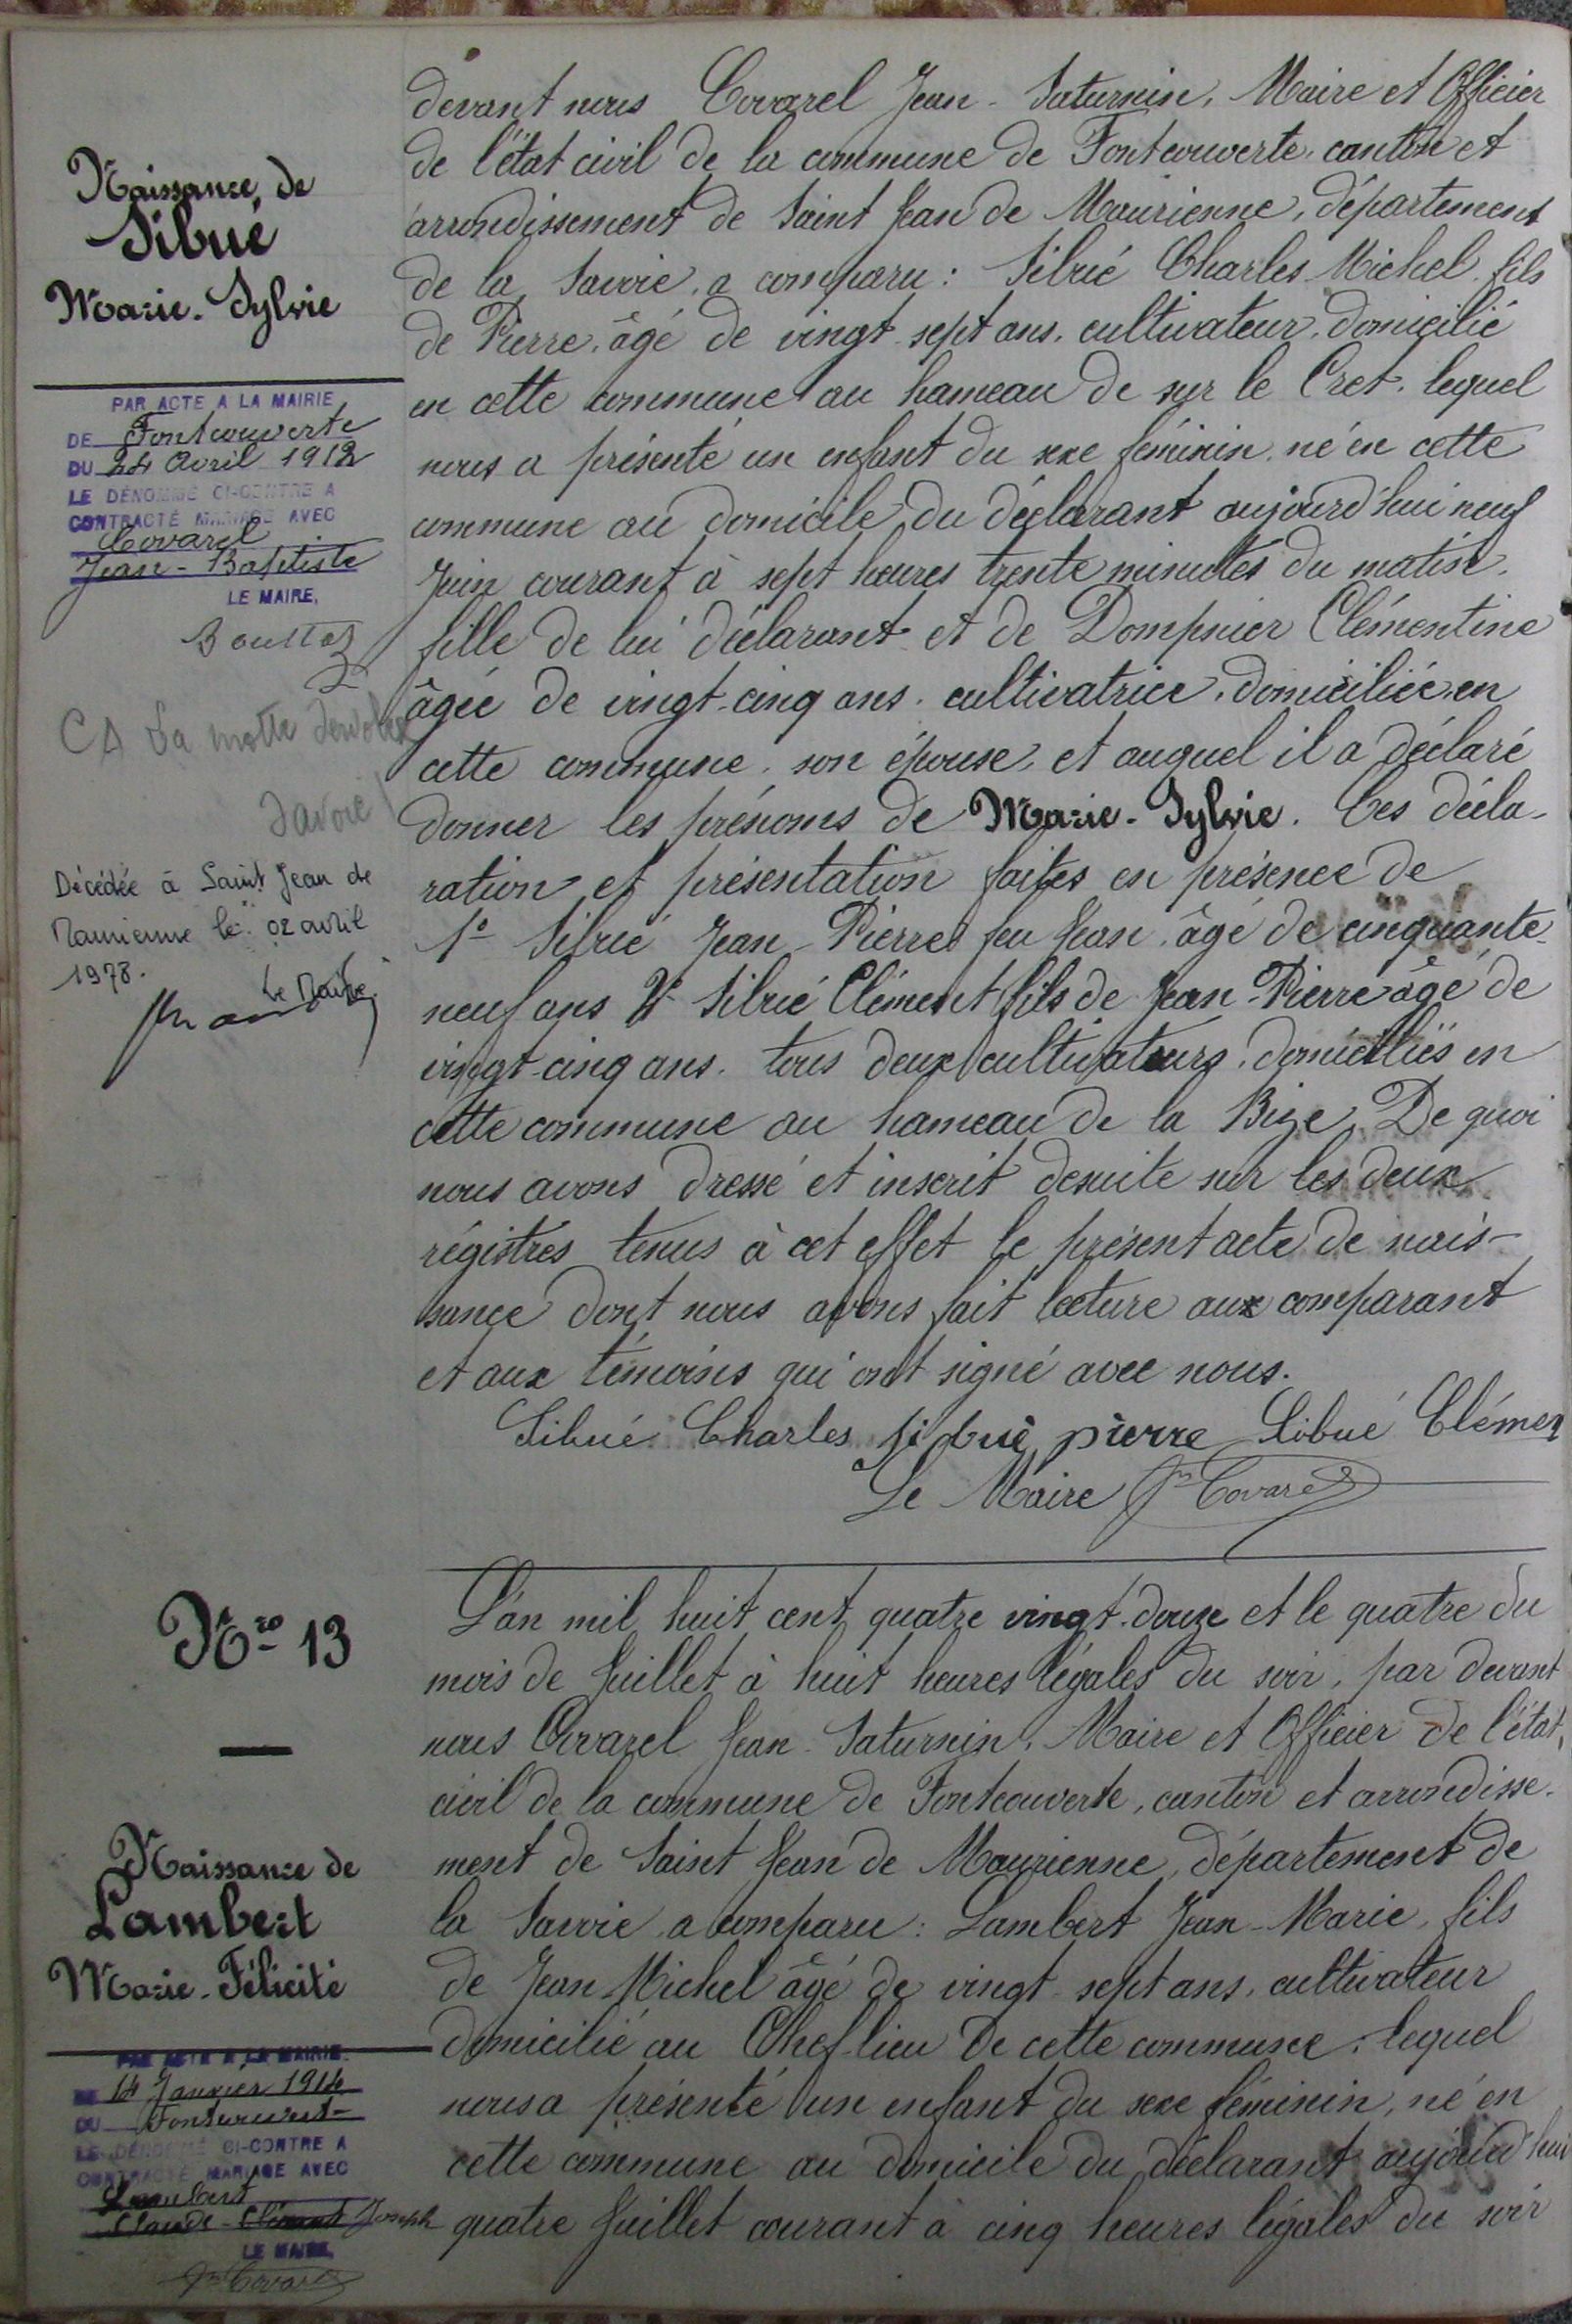 Naissance de
Sibué
Marie-Sylvie
PAR ACTE A LA MAIRIE
DE Fontcouverte
DU 24 Avril 1912
LE DÉNOMMÉ CI-CONTRE A
CONTRACTÉ MARIAGE AVEC
Covarel
Jean-Baptiste
LE MAIRE,
CA La motte
Savoie
Décédée à Saint Jean de
Maurienne le 02 avril
1978.
Le Maire
devant nous Covarel Jean-Saturnin, Maire et Officier
de l'état civil de la commune de Fontcouverte, canton et
arrondissement de Saint Jean de Maurienne, département
de la Savoie, a comparu : Sibué Charles-Michel, fils
de Pierre, âgé de vingt-sept ans, cultivateur, domicilié
en cette commune au hameau de sur le Cret, lequel
nous a présenté un enfant du sexe féminin, né en cette
commune au domicile du déclarant aujourd'hui neuf
Juin courant à sept heures trente minutes du matin,
fille de lui déclarant et de Dompnier Clémentine
âgée de vingt-cinq ans, cultivatrice, domiciliée en
cette commune, son épouse, et auquel il a déclaré
donner les prénoms de Marie-Sylvie. Ces décla-
ration et présentation faites en présence de
1º Sibué Jean-Pierre feu Jean, âgé de cinquante-
neuf ans 2º Sibué Clément fils de Jean-Pierre âgé de
vingt-cinq ans, tous deux cultivateurs, domiciliés en
cette commune au hameau de la Bise. De quoi
nous avons dressé et inscrit desuite sur les deux
régistres tenus à cet effet le présent acte de nais-
sance dont nous avons fait lecture aux comparant
et aux témoins qui ont signé avec nous.
Sibué Charles sibué pierre Sibué Clémen
Le Maire Jn Covarel
Nro 13
Naissance de
Lambert
Marie-Félicité
PAR ACTE A LA MAIRIE
DE 14 Janvier 1914
DU Fontcouverte
LE DÉNOMMÉ CI-CONTRE A
CONTRACTÉ MARIAGE AVEC
Lambert
Claude-Clément Joseph
LE MAIRE,
Jn Covarel
L'an mil huit cent quatre vingt-douze et le quatre du
mois de Juillet à huit heures légales du soir, par devant
nous Covarel Jean-Saturnin, Maire et Officier de l'état
civil de la commune de Fontcouverte, canton et arrondisse-
ment de Saint Jean de Maurienne, département de
la Savoie, a comparu : Lambert Jean-Marie, fils
de Jean Michel âgé de vingt-sept ans, cultivateur
domicilié au Chef-lieu de cette commune, lequel
nous a présenté un enfant du sexe féminin, né en
cette commune au domicile du déclarant aujourd'hui
quatre Juillet courant à cinq heures légales du soir